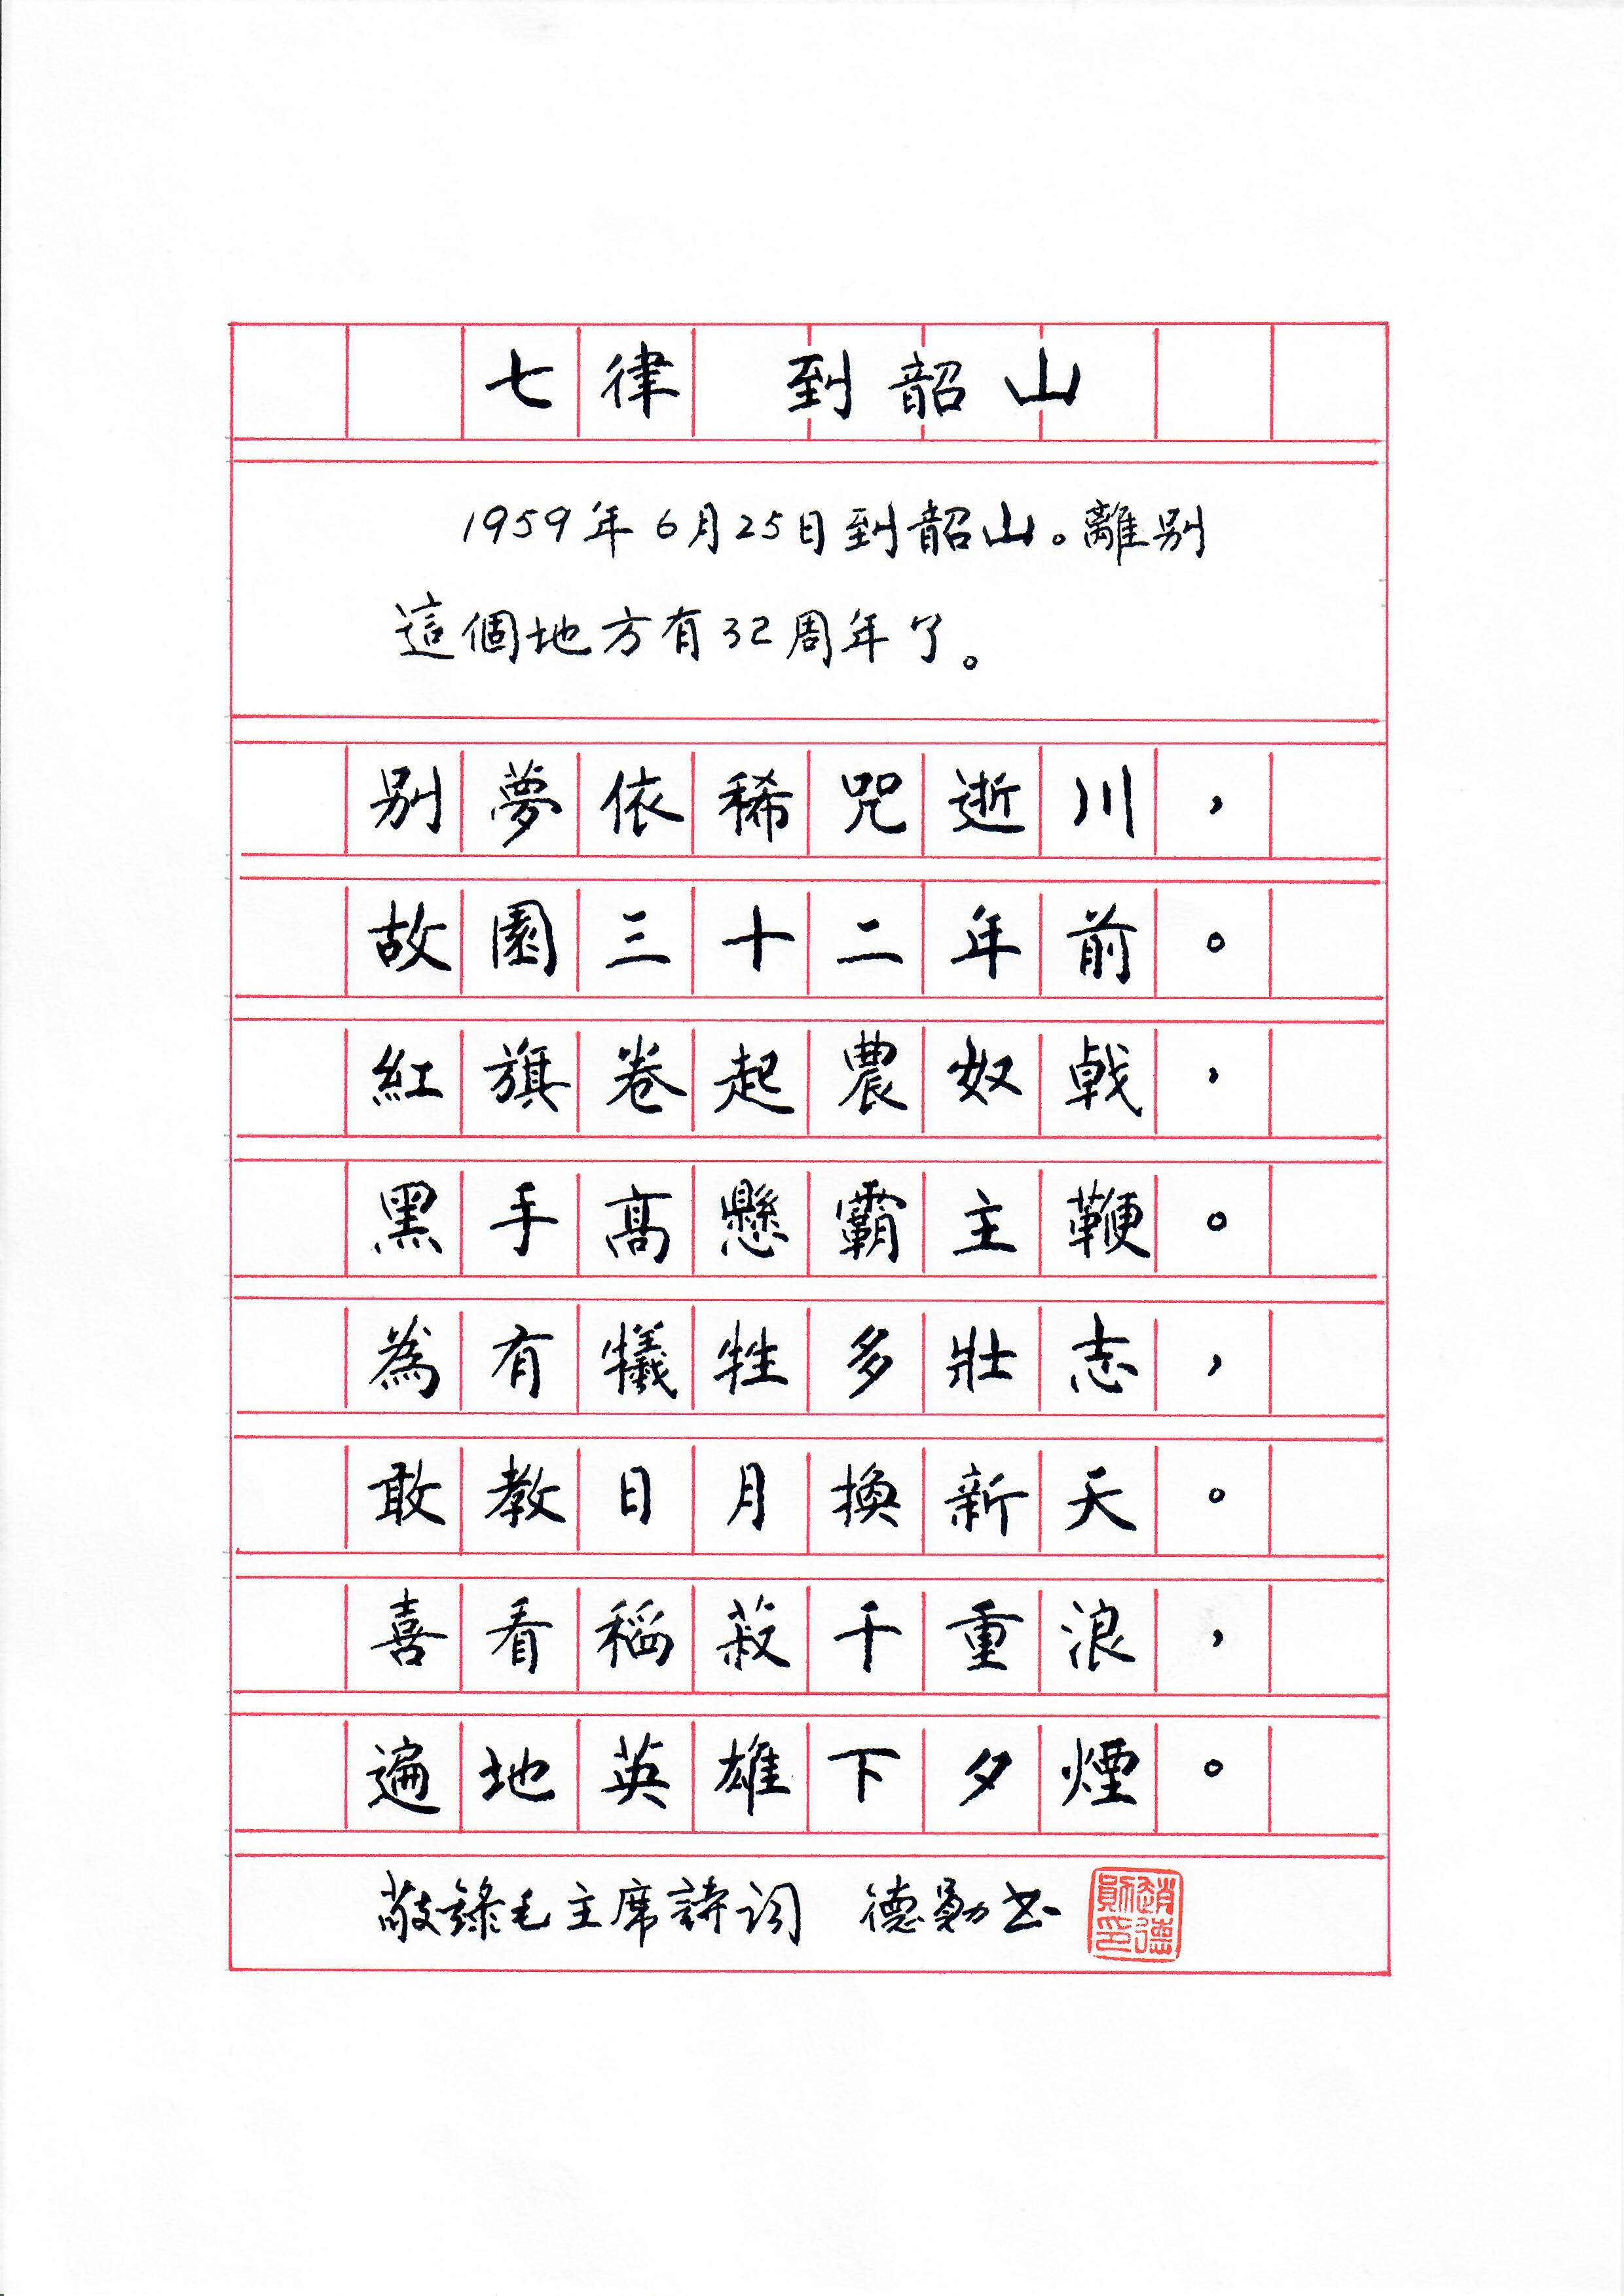 七律 到韶山
1959年6月25日到韶山。離别
這個地方有32周年了。
别夢依稀咒逝川，
故園三十二年前。
紅旗卷起農奴戟，
黑手高懸霸主鞭。
為有犧牲多壯志，
敢教日月換新天。
喜看稻菽千重浪，
遍地英雄下夕煙。
敬錄毛主席詩詞 德勛书
趙德勛印